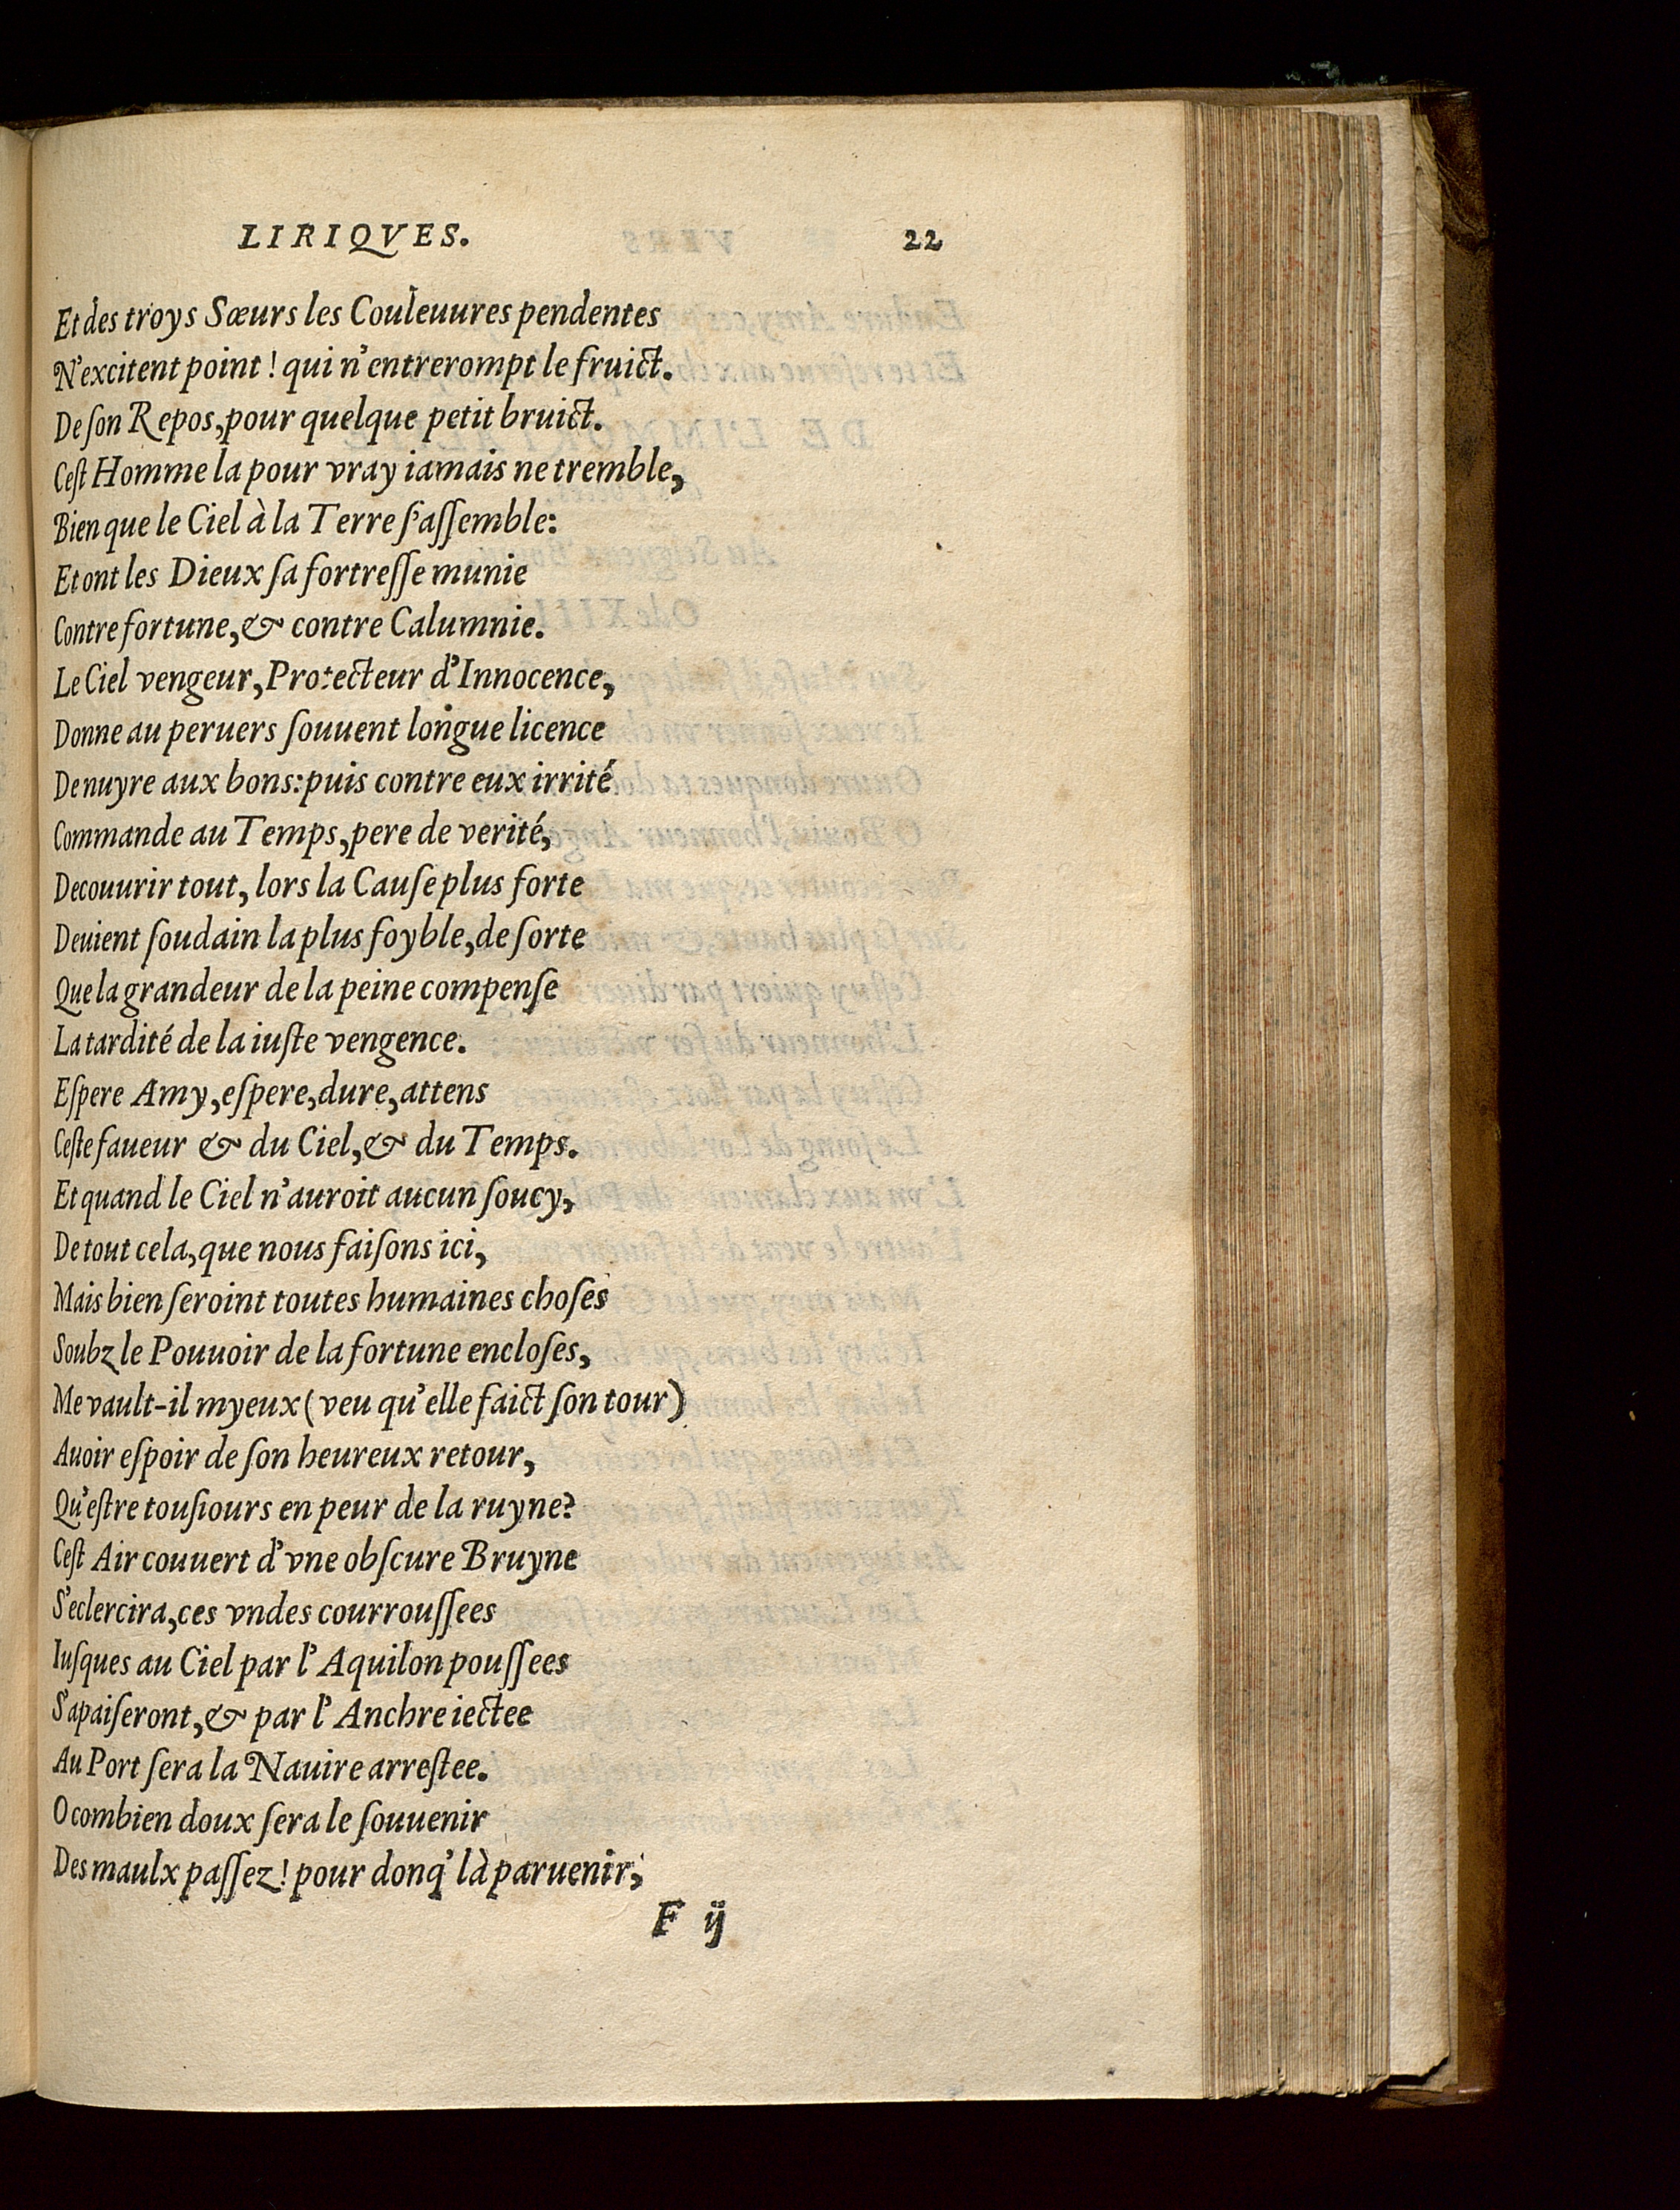 LIRIQVES. 22
Et des troys Sœurs les Couleuures pendentes
N'excitent point! qui n'entrerompt le fruict.
De ſon Repos, pour quelque petit bruict.
Ceſt Homme la pour vray iamais ne tremble,
Bien que le Ciel à la Terre ſ'aſſemble:
Et ont les Dieux ſa fortreſſe munie
Contre fortune, & contre Calumnie.
Le Ciel vengeur, Protecteur d'Innocence,
Donne au peruers ſouuent longue licence
De nuyre aux bons: puis contre eux irrité
Commande au Temps, pere de verité,
Decouurir tout, lors la Cauſe plus forte
Deuient ſoudain la plus foyble, de ſorte
Que la grandeur de la peine compenſe
La tardité de la iuſte vengence.
Eſpere Amy, eſpere, dure, attens
Ceſte faueur & du Ciel, & du Temps.
Et quand le Ciel n'auroit aucun ſoucy,
De tout cela, que nous faiſons ici,
Mais bien ſeroint toutes humaines choſes
Soubz le Pouuoir de la fortune encloſes,
Me vault-il myeux (veu qu'elle faict ſon tour)
Auoir eſpoir de ſon heureux retour,
Qu'eſtre touſiours en peur de la ruyne?
Ceſt Air couuert d'vne obſcure Bruyne
S'eclercira, ces vndes courrouſſees
Iuſques au Ciel par l'Aquilon pouſſees
S'apaiſeront, & par l'Anchre iectee
Au Port ſera la Nauire arreſtee.
O combien doux ſera le ſouuenir
Des maulx paſſez! pour donq' là paruenir,
F ij